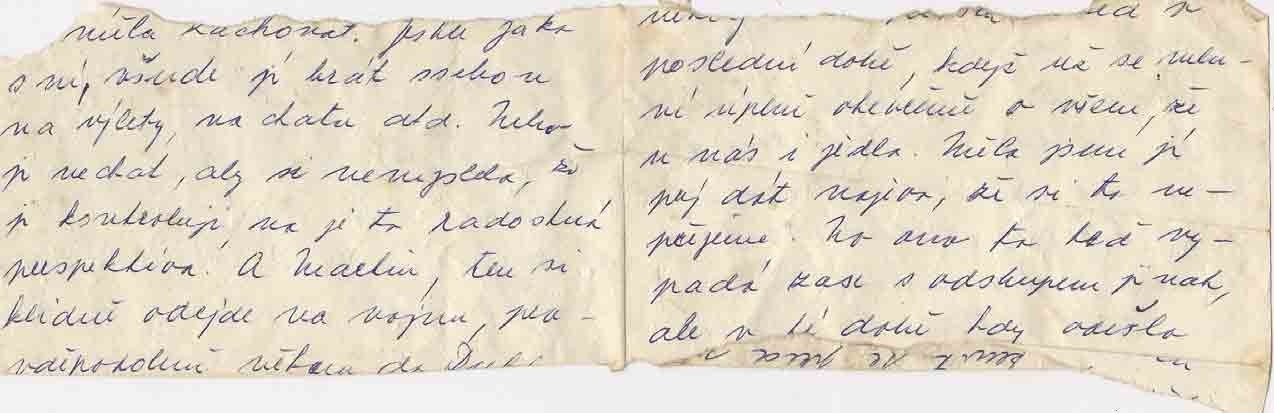 měla zachovat. jako
s ní, všude jí brát ssebou
na výlety, na chatu atd. Nebo
ji nechat, aby si nemyslela, že
ji kontroluji, no je to radostná
perspektiva. A Martin, ten si
klidně odejde na vojnu, pra-
vděpodobně někam do
poslední době, když už se mlu-
ví úplně otevřeně o všem, že
u nás i jedla. Měla jsem jí
prý dát najevo, že si to ne-
přejeme. No ono to teď vy-
padá zase s odstupem jinak,
ale v té době kdy odešla